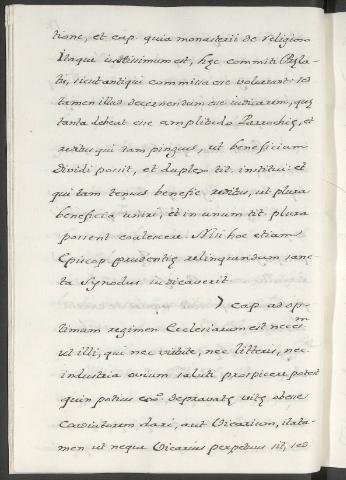 tione, et cap. quia monasterii de religioso
Itaque iustissimum est, hęc committi Pręla-
tis, sicut antiqui commissa esse voluerunt sed
tamen illud decernendum esse iudicarem, quę
tanta debeat esse amplitudo Parrochię, et
reditus qui tam pingues, ut beneficium
dividi possit, et duplex tit. institui: et
qui tam tenues benefic. reditus, ut plura
beneficia uniri, et in unum tit. plura
possent coalescere. Nisi hoc etiam
Episcop. prudentię relinquendum sanc-
ta Synodus iudicaverit
Cap. ad op-
timam regimen Ecclesiarum est neces.m
ut illi, qui nec virtute, nec litteris, nec
industria ovium saluti prospicere potest
quin potius depravatę vitę obesse
Coadiutorem dari, aut Vicarium, ita ta-
men ut neque Vicarius perpetuus sit, sed